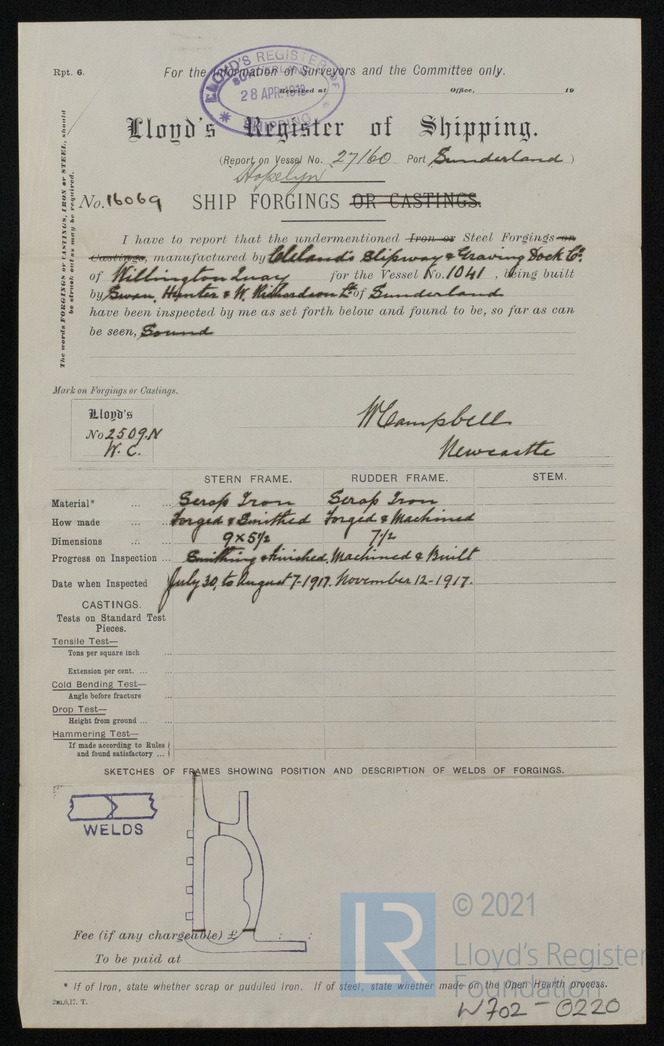 Rpt. 6.
For the Information of Surveyors and the Committee only.
LLOYD'S REGISTER OF SHIPPING
SUNDERLAND
28 APR. 1918
Received at Office, 19
Lloyd's Register of Shipping.
(Report on Vessel No. 27160 Port Sunderland)
Hopelyn
No. 16069 SHIP FORGINGS OR CASTINGS.
The words FORGINGS or CASTINGS, IRON or STEEL, should
be struck out as may be required.
I have to report that the undermentioned Iron or Steel Forgings or
Castings, manufactured by Cleland's Slipway & Graving Dock Co.
of Willington Quay for the Vessel No. 1041, being built
by Swan, Hunter & W. Richardson Ld of Sunderland
have been inspected by me as set forth below and found to be, so far as can
be seen, Sound
Mark on Forgings or Castings.
Lloyd's
No 2509.N
W.C.
W Campbell
Newcastle
STERN FRAME. RUDDER FRAME. STEM.
Material* ... ... Scrap Iron Scrap Iron
How made ... ... Forged & Smithed Forged & Machined
Dimensions ... ... 9 x 5 1/2 7 1/2
Progress on Inspection ... Smithing & Finished, Machined & Built
Date when Inspected July 30, to August 7-1917. November 12-1917.
CASTINGS.
Tests on Standard Test
Pieces.
Tensile Test—
Tons per square inch ...
Extension per cent. ... ...
Cold Bending Test—
Angle before fracture ...
Drop Test—
Height from ground ... ...
Hammering Test—
If made according to Rules
and found satisfactory ...
SKETCHES OF FRAMES SHOWING POSITION AND DESCRIPTION OF WELDS OF FORGINGS.
WELDS
Fee (if any chargeable) £ : :
To be paid at
* If of Iron, state whether scrap or puddled Iron. If of steel, state whether made on the Open Hearth process.
2m,6,17. T.
© 2021
LR
Lloyd's Register
Foundation
W702-0220